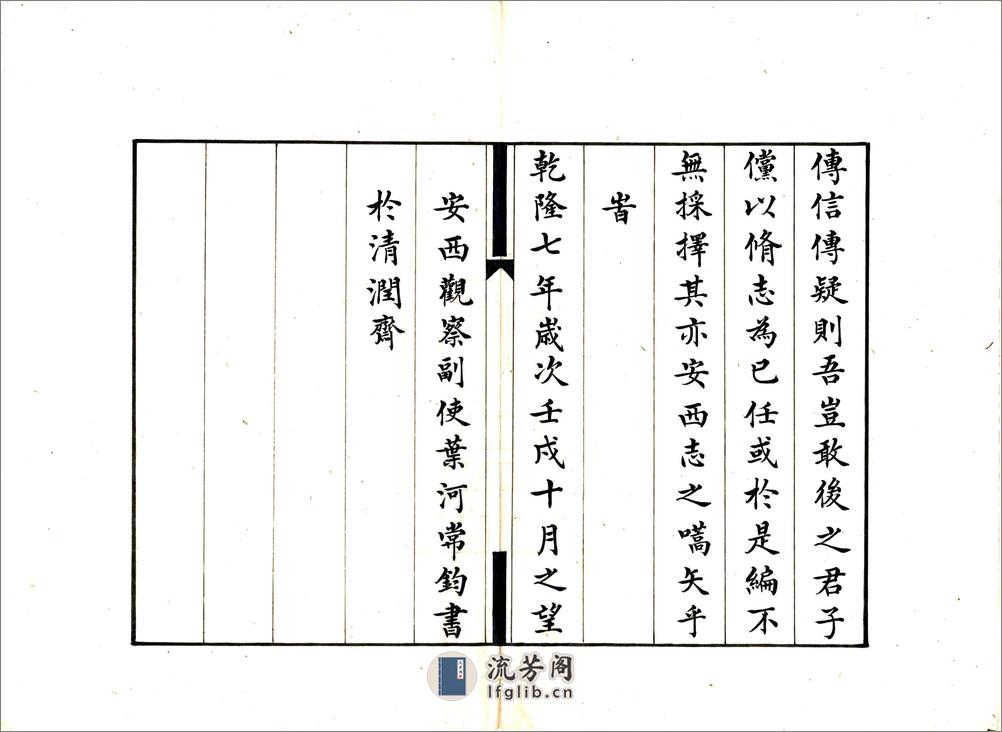 傳信傳疑則吾豈敢後之君子
儻以脩志為已任或於是編不
無採擇其亦安西志之嚆矢乎
旹
乾隆七年歲次壬戌十月之望
安西觀察副使葉河常鈞書
於清潤齋
流芳阁
lfglib.cn